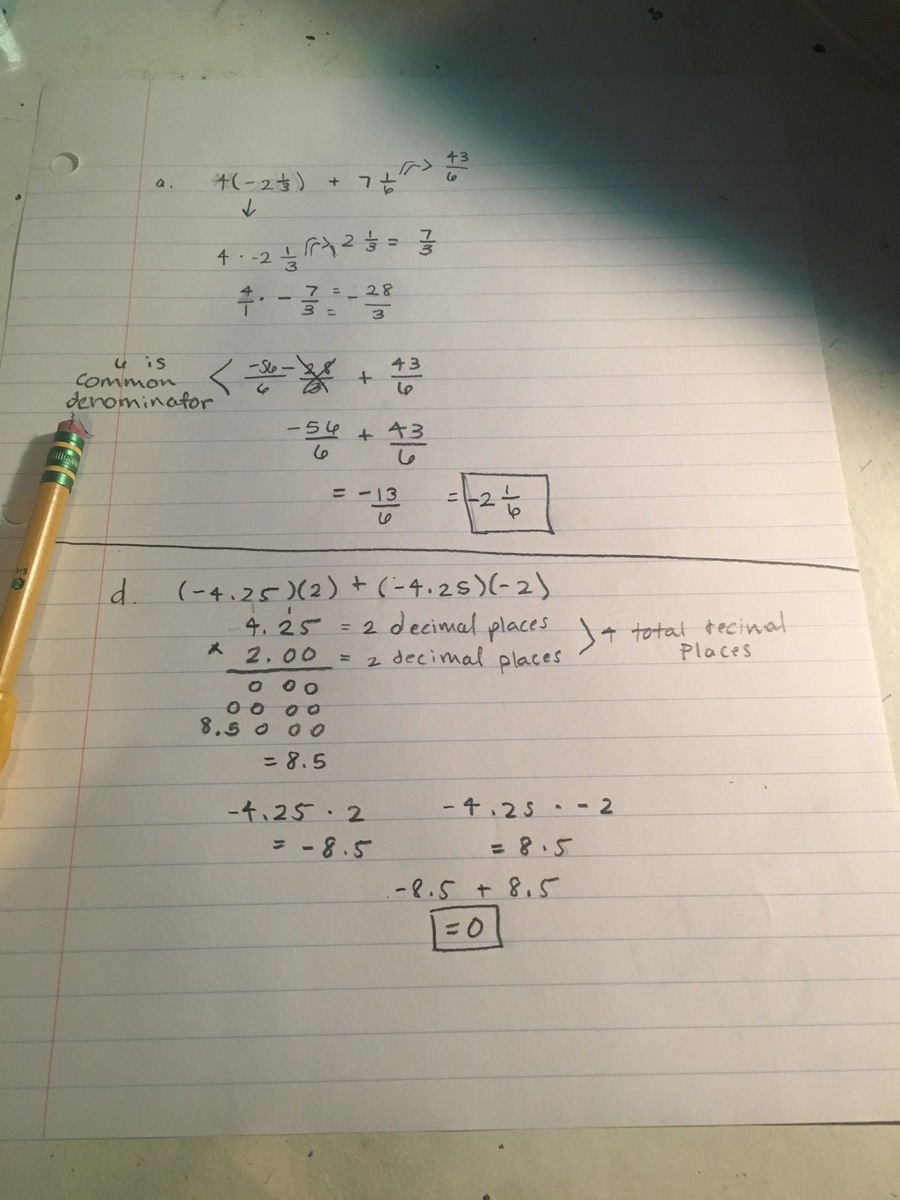 a. 4(-2 1/3) + 7 1/6 → 43/6
↓
4 · -2 1/3 → 2 1/3 = 7/3
4/1 · - 7/3 = = - 28/3
6 is
common
denominator < -56/6 - 28/3 + 43/6
-56/6 + 43/6
= -13/6 = -2 1/6
d. (-4.25)(2) + (-4.25)(-2)
4.25 = 2 decimal places
× 2.00 = 2 decimal places > 4 total decimal places
0 00
00 00
8.5 0 00
= 8.5
-4.25 · 2 -4.25 · -2
= -8.5 = 8.5
-8.5 + 8.5
= 0